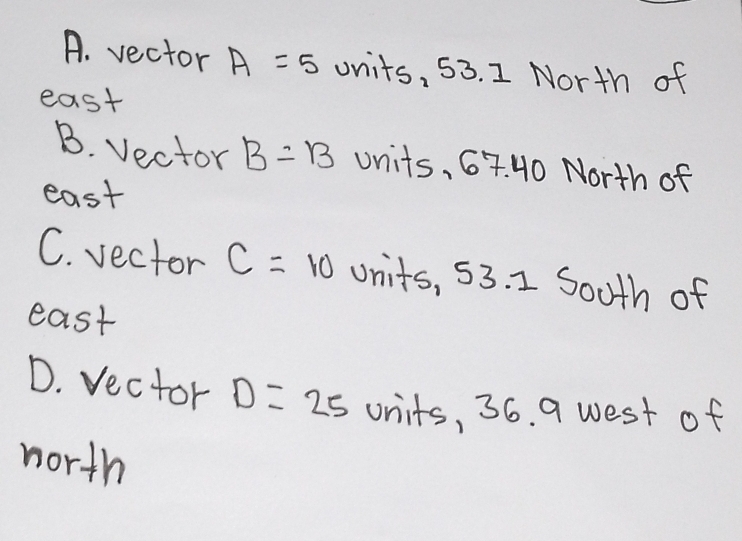 A. vector A = 5 units, 53.1 North of
east
B. Vector B = 13 units, 67.40 North of
east
C. vector C = 10 units, 53.1 South of
east
D. Vector D = 25 units, 36.9 west of
north